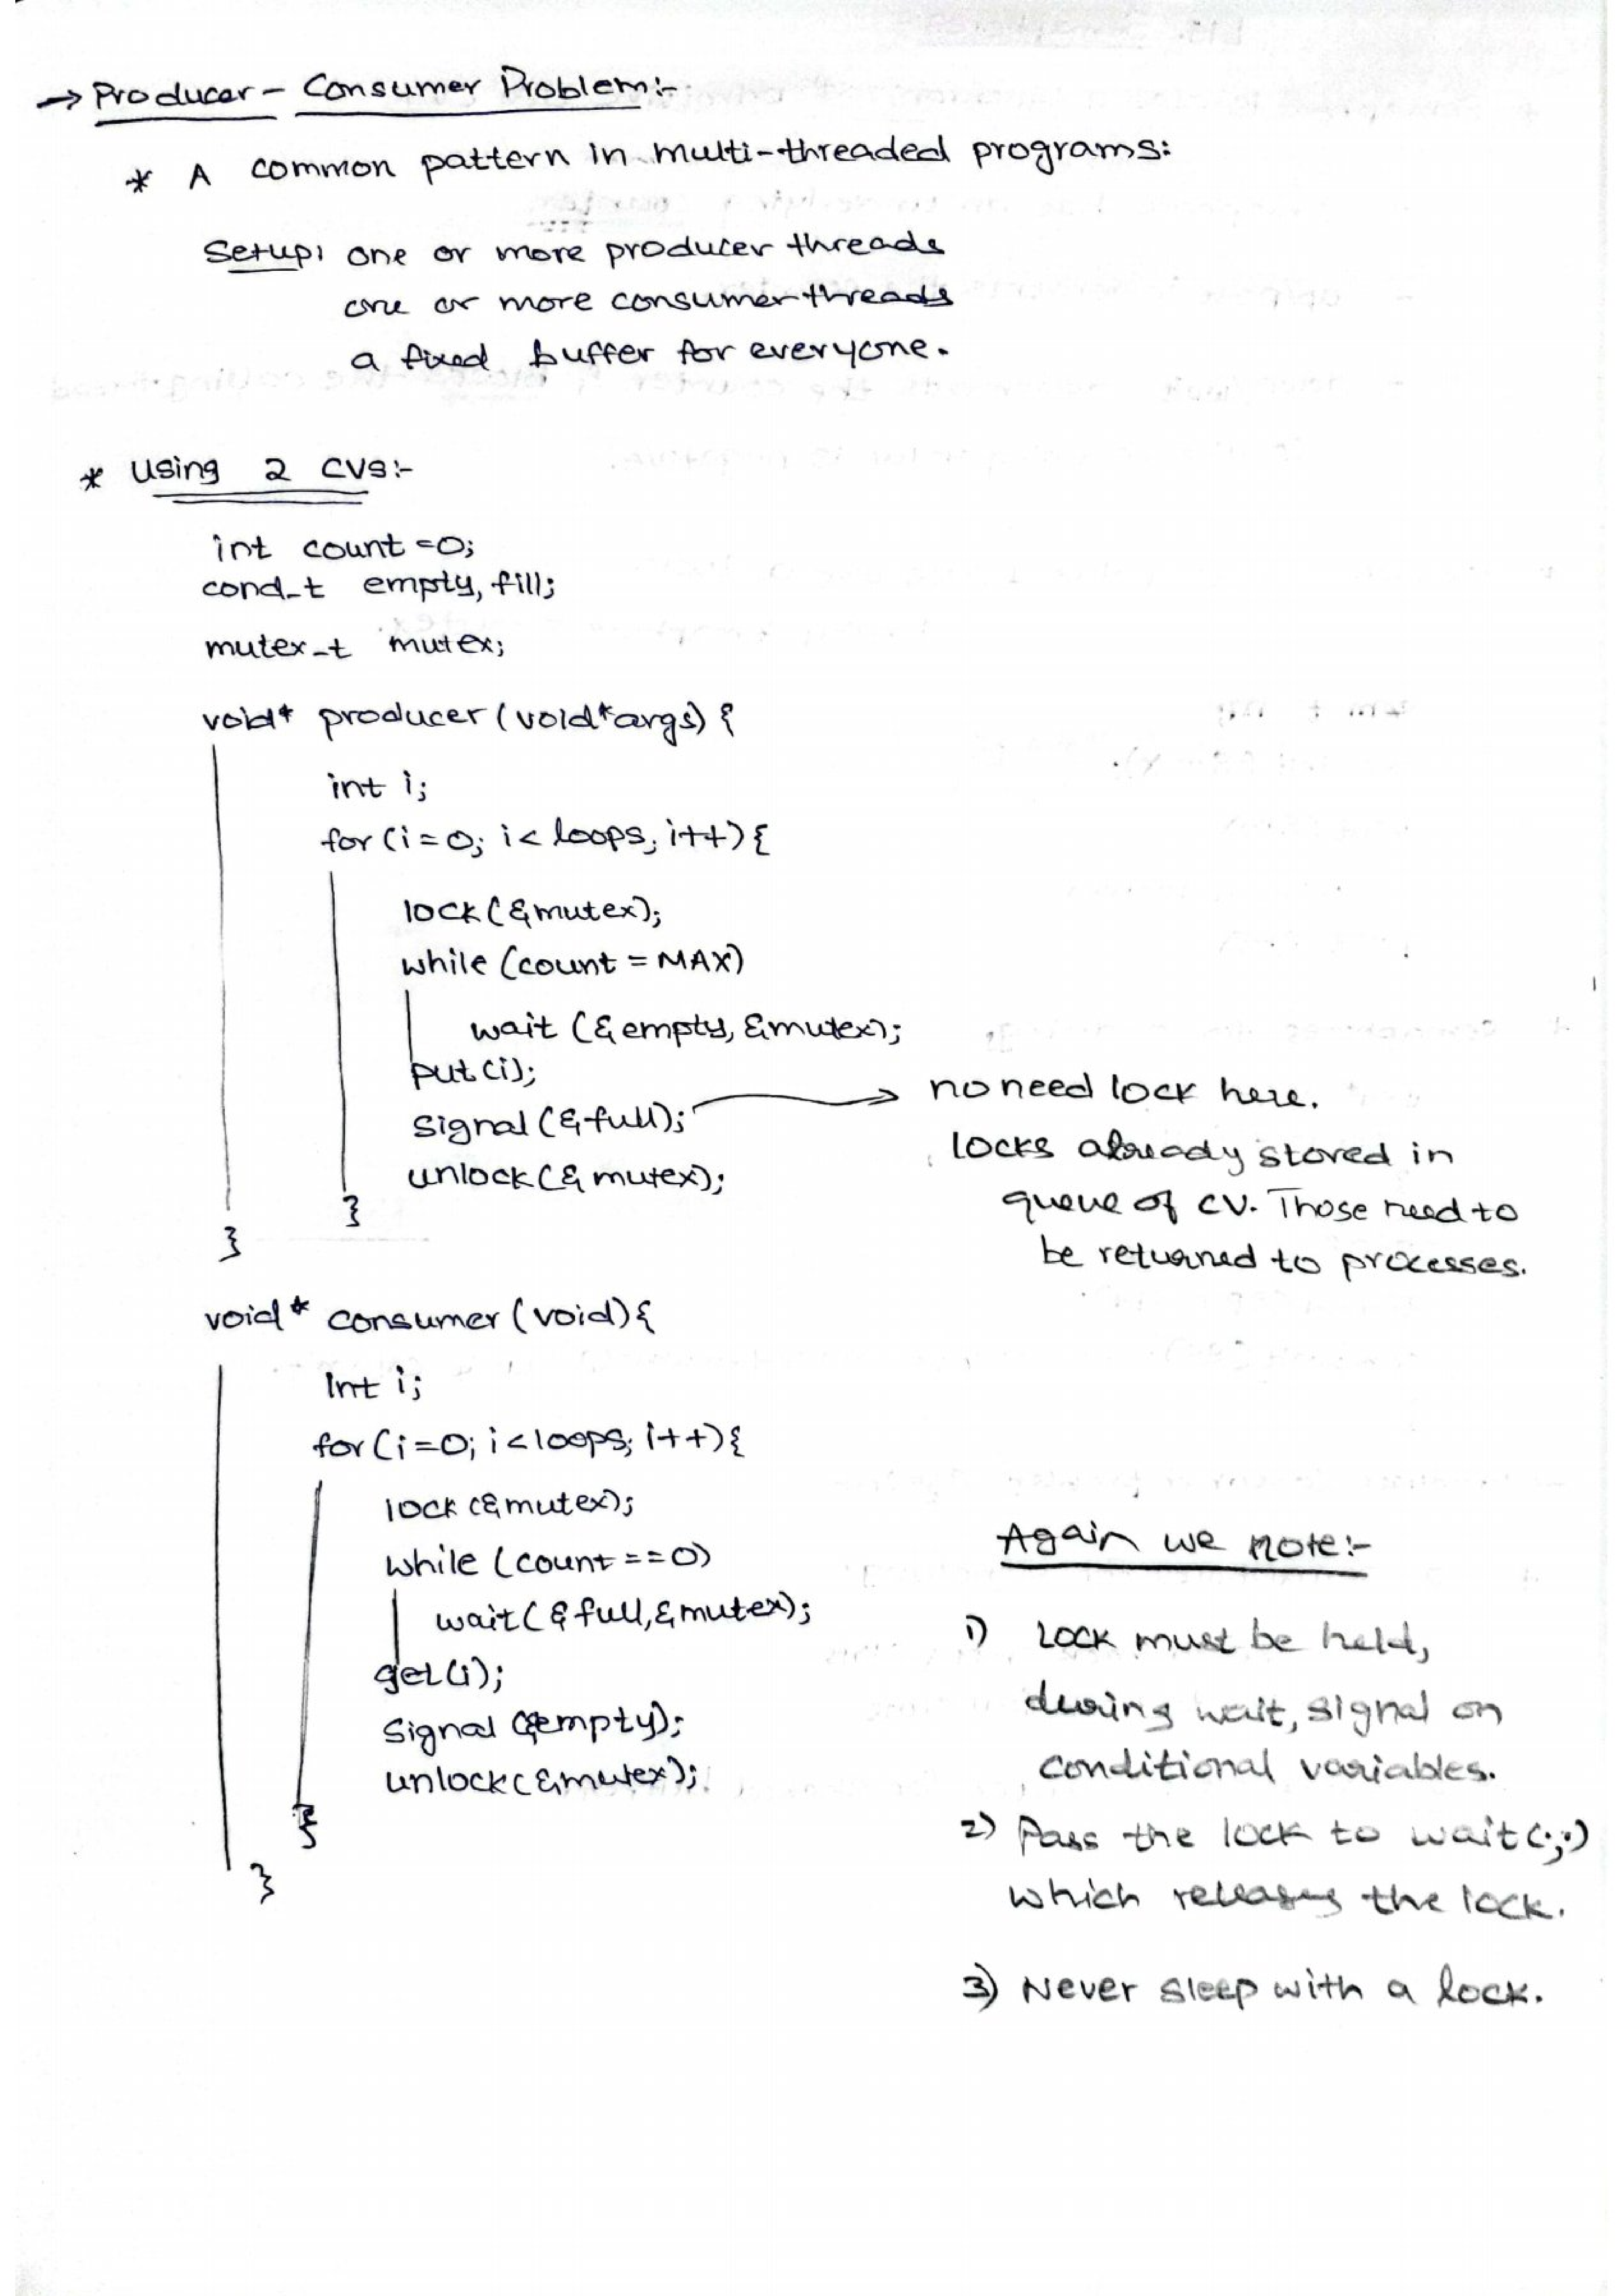 → Producer - Consumer Problem:-
* A common pattern in multi-threaded programs:
Setup: one or more producer threads
one or more consumer threads
a fixed buffer for everyone.
* Using 2 CVs:-
int count =0;
cond_t empty, fill;
mutex_t mutex;
void* producer (void*args) {
int i;
for (i = 0; i < loops; i++) {
lock (&mutex);
while (count = MAX)
wait (&empty, &mutex);
put(i);
signal (&full); → no need lock here.
locks already stored in
queue of CV. Those need to
be returned to processes.
unlock (&mutex);
}
}
void* consumer (void) {
Int i;
for (i=0; i<loops; i++) {
lock (&mutex);
while (count ==0)
wait (&full, &mutex);
get(i);
Signal (&empty);
unlock (&mutex);
}
}
Again we note:-
1) Lock must be held,
during wait, signal on
conditional variables.
2) Pass the lock to wait(·,·)
which releases the lock.
3) Never sleep with a lock.